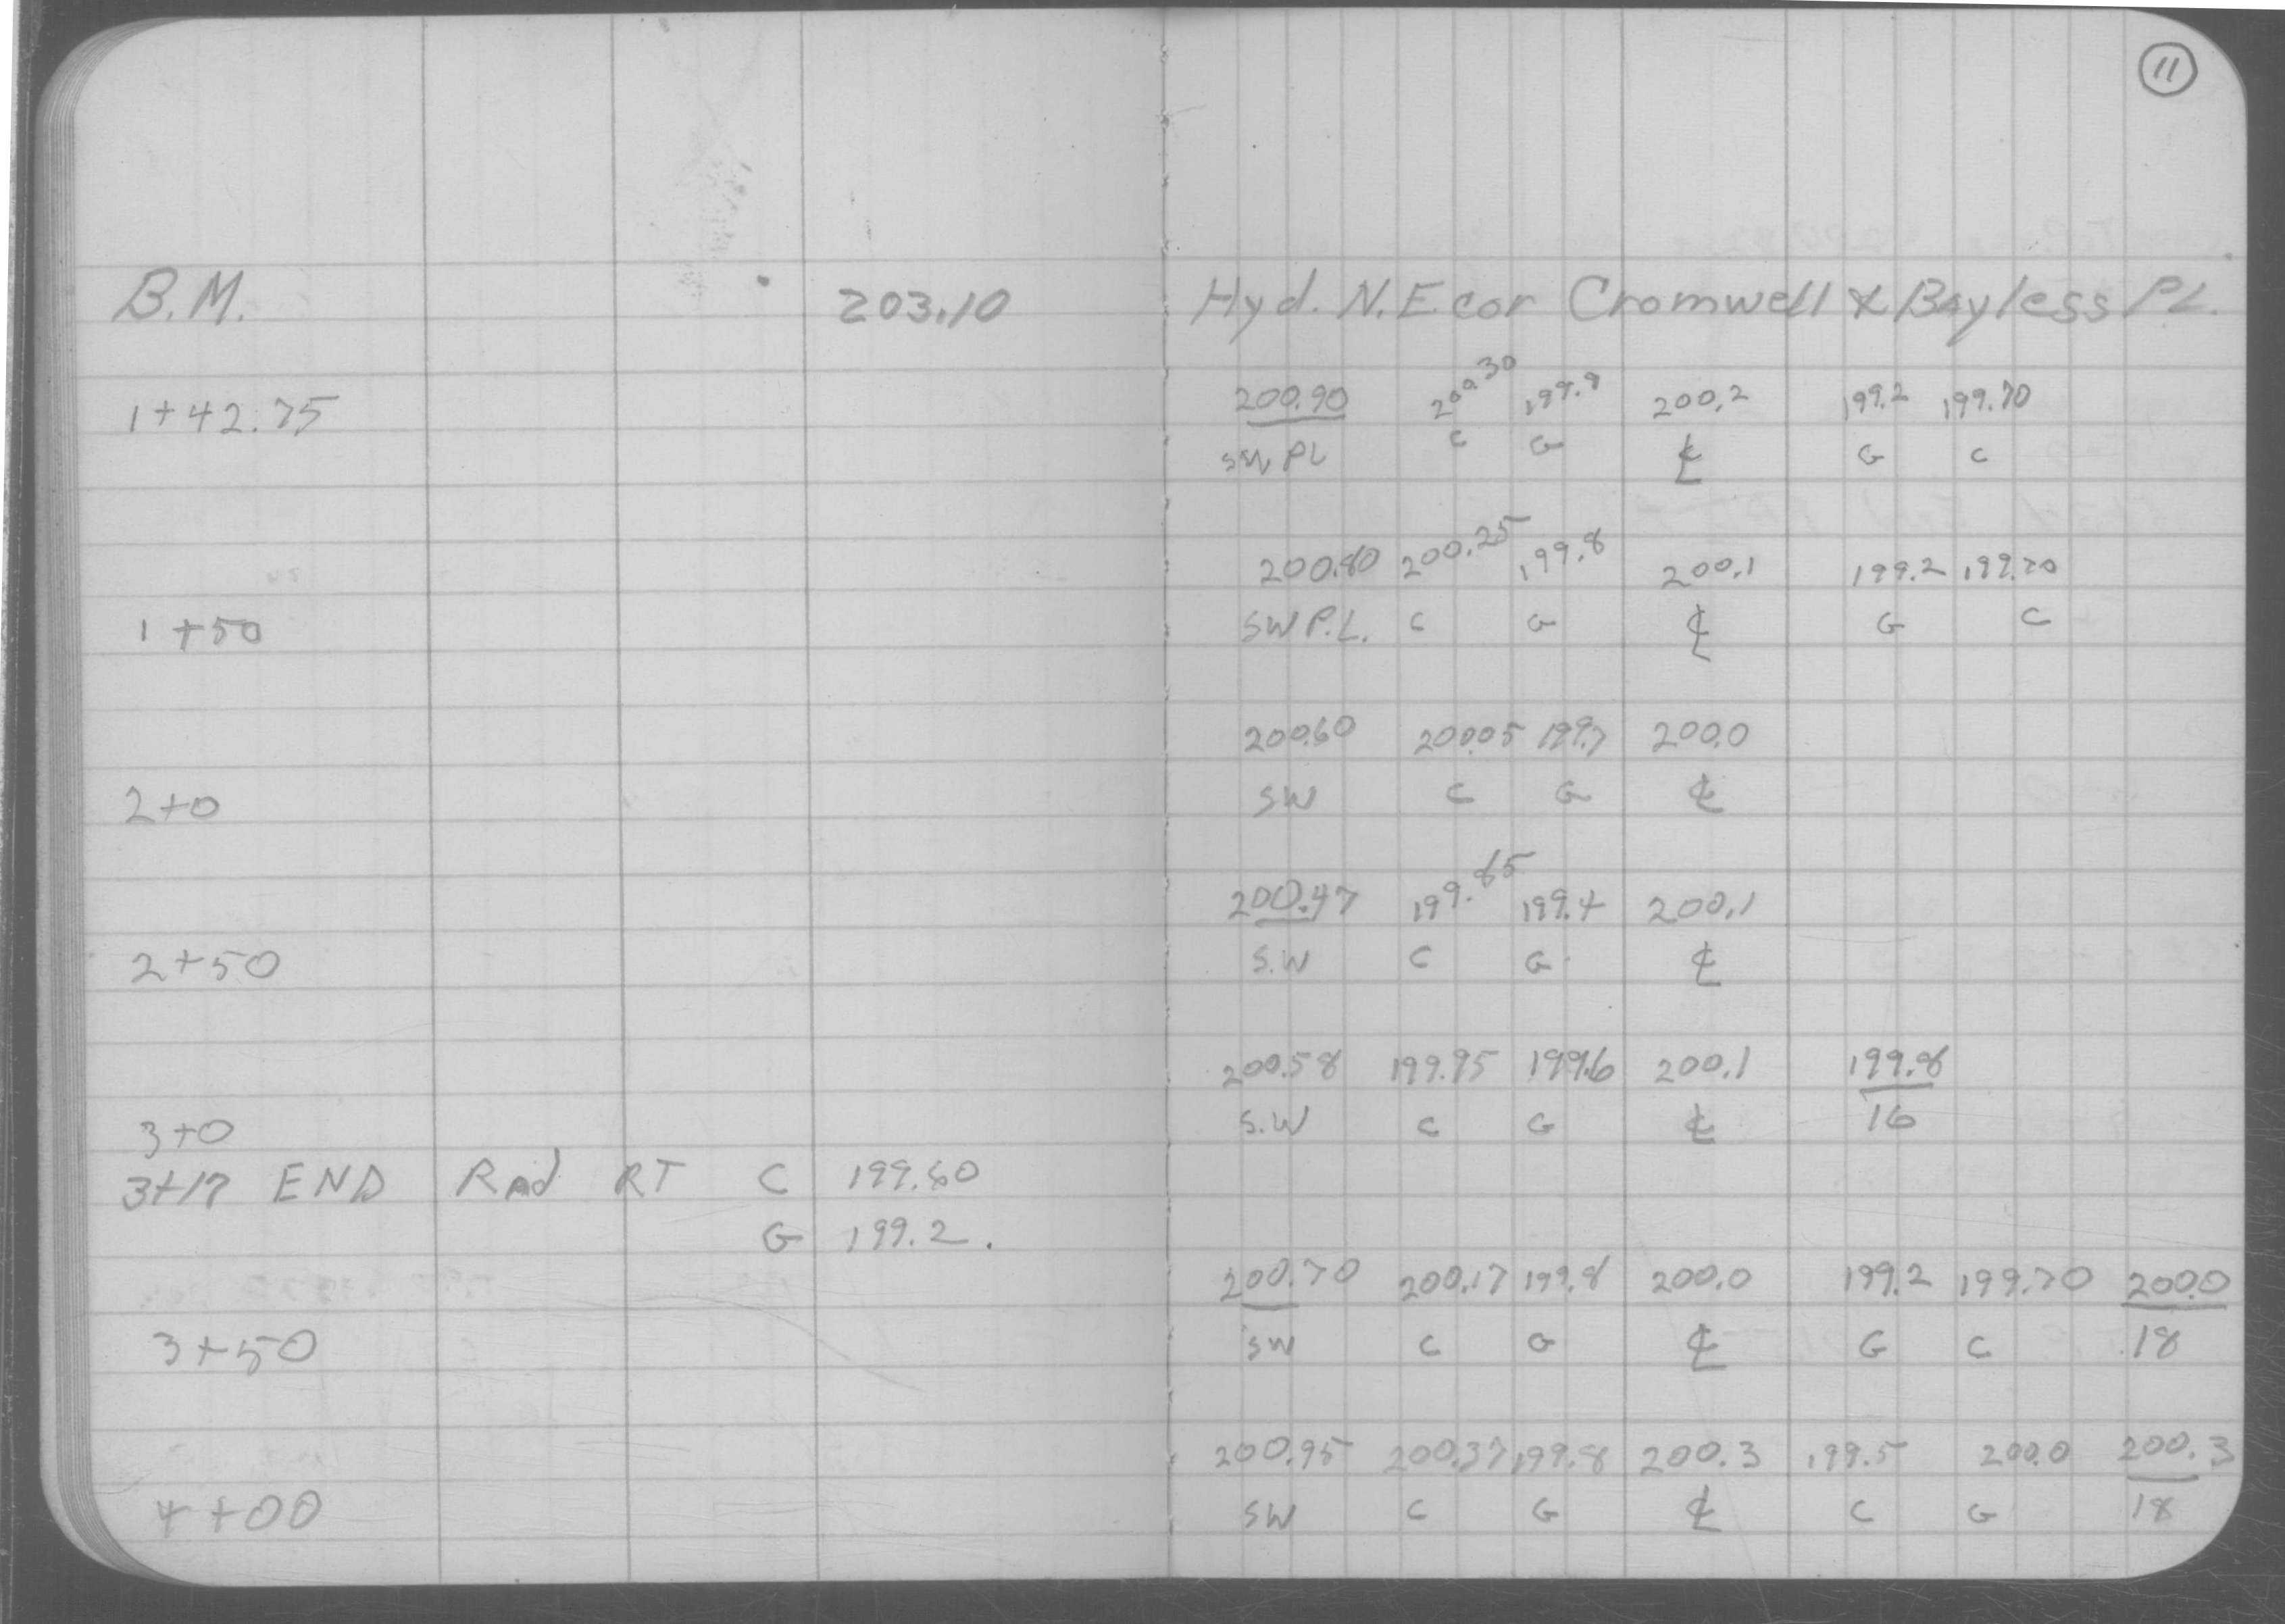 11
B.M. 203.10 Hyd. N.E. cor Cromwell & Bayless PL.
200.90 200.30 199.9 200.2 199.2 199.70
1+42.75 SW PL C G ℄ G C
200.80 200.25 199.8 200.1 199.2 199.70
1+50 SW P.L. C G ℄ G C
200.60 200.05 199.7 200.0
2+0 SW C G ℄
200.47 199.85 199.4 200.1
2+50 S.W C G ℄
200.58 199.95 199.6 200.1 199.8
3+0 S.W C G ℄ 16
3+17 END Rad RT C 199.60
G 199.2.
200.70 200.17 199.8 200.0 199.2 199.70 200.0
3+50 SW C G ℄ G C 18
200.95 200.37 199.8 200.3 199.5 200.0 200.3
4+00 SW C G ℄ C G 18